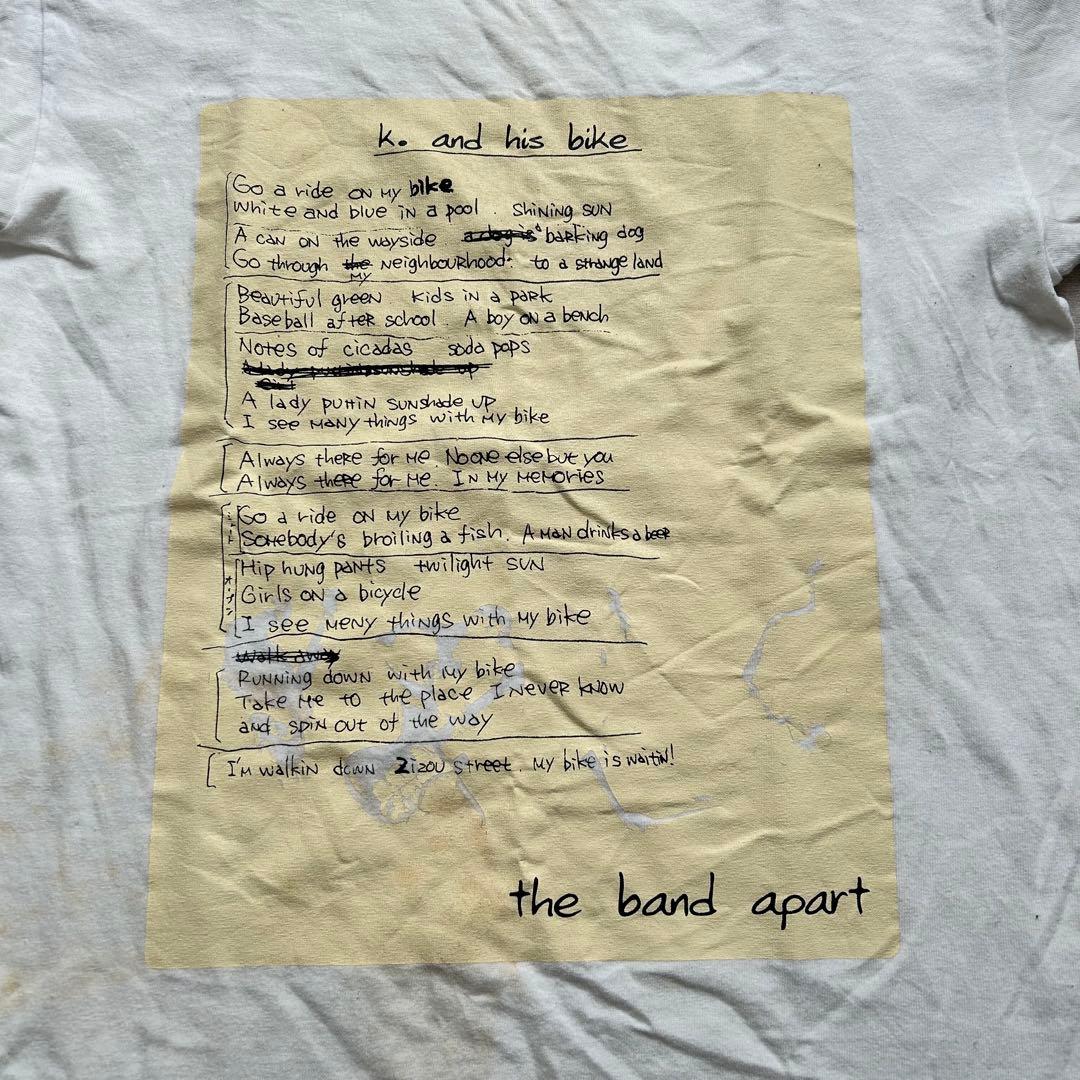 k. and his bike
Go a ride on my bike
White and blue in a pool. Shining sun
A can on the wayside a dog is a barking dog
Go through the my neighbourhood. to a strange land
Beautiful green kids in a park
Baseball after school. A boy on a bench
Notes of cicadas soda pops
A lady puttin sunshade up
Girl
A lady puttin sunshade up
I see many things with my bike
Always there for me. No one else but you
Always there for me. In my memories
Go a ride on my bike
Somebody's broiling a fish. A man drinks a beer
Hip hung pants twilight sun
Girls on a bicycle
I see meny things with my bike
Walk away
Running down with my bike
Take me to the place I never know
and spin out of the way
I'm walkin down Zizou street. My bike is waitin!
the band apart